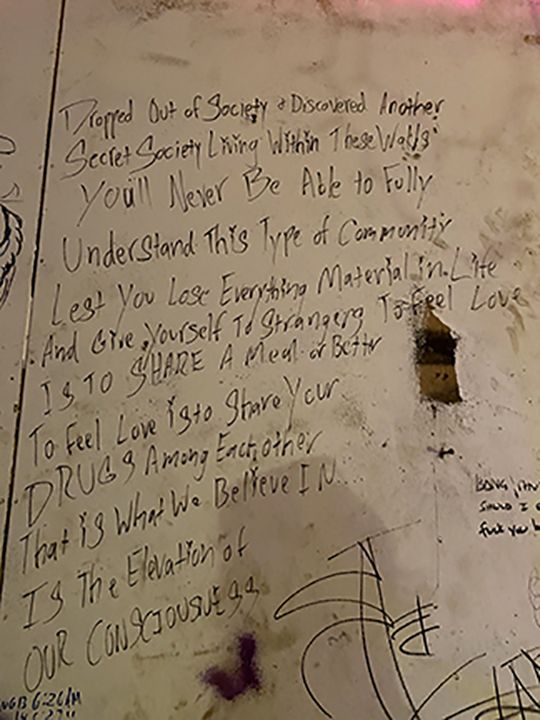 Dropped Out of Society & Discovered Another
Secret Society Living Within These Walls
You'll Never Be Able to Fully
Understand This Type of Community
Lest You Lose Everything Material in Life
And Give Yourself To Strangers To Feel Love
Is TO SHARE A Meal or Better
To Feel Love is to Share Your
DRUGS Among Each other
That is What We Believe IN...
Is The Elevation of
OUR CONSCIOUSNESS
6:26AM
fuck you